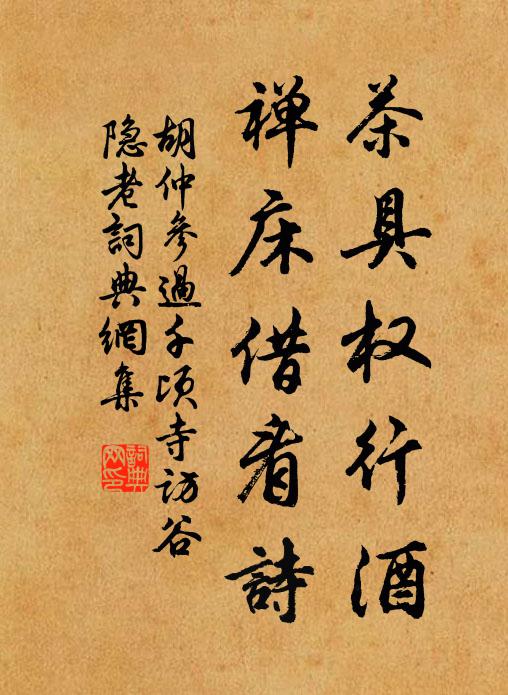 茶具权行酒
禅床借看詩
胡仲参過千頃寺访谷
隐老詞典網集
詞典
网印